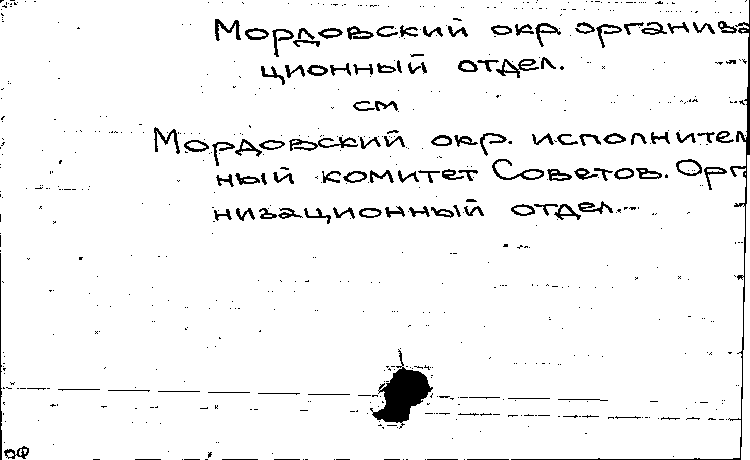 Мордовский окр. организа
ционный отдел.
см
Мордовский окр. исполнител
ный комитет Советов. Орга
низационный отдел.
ОФ